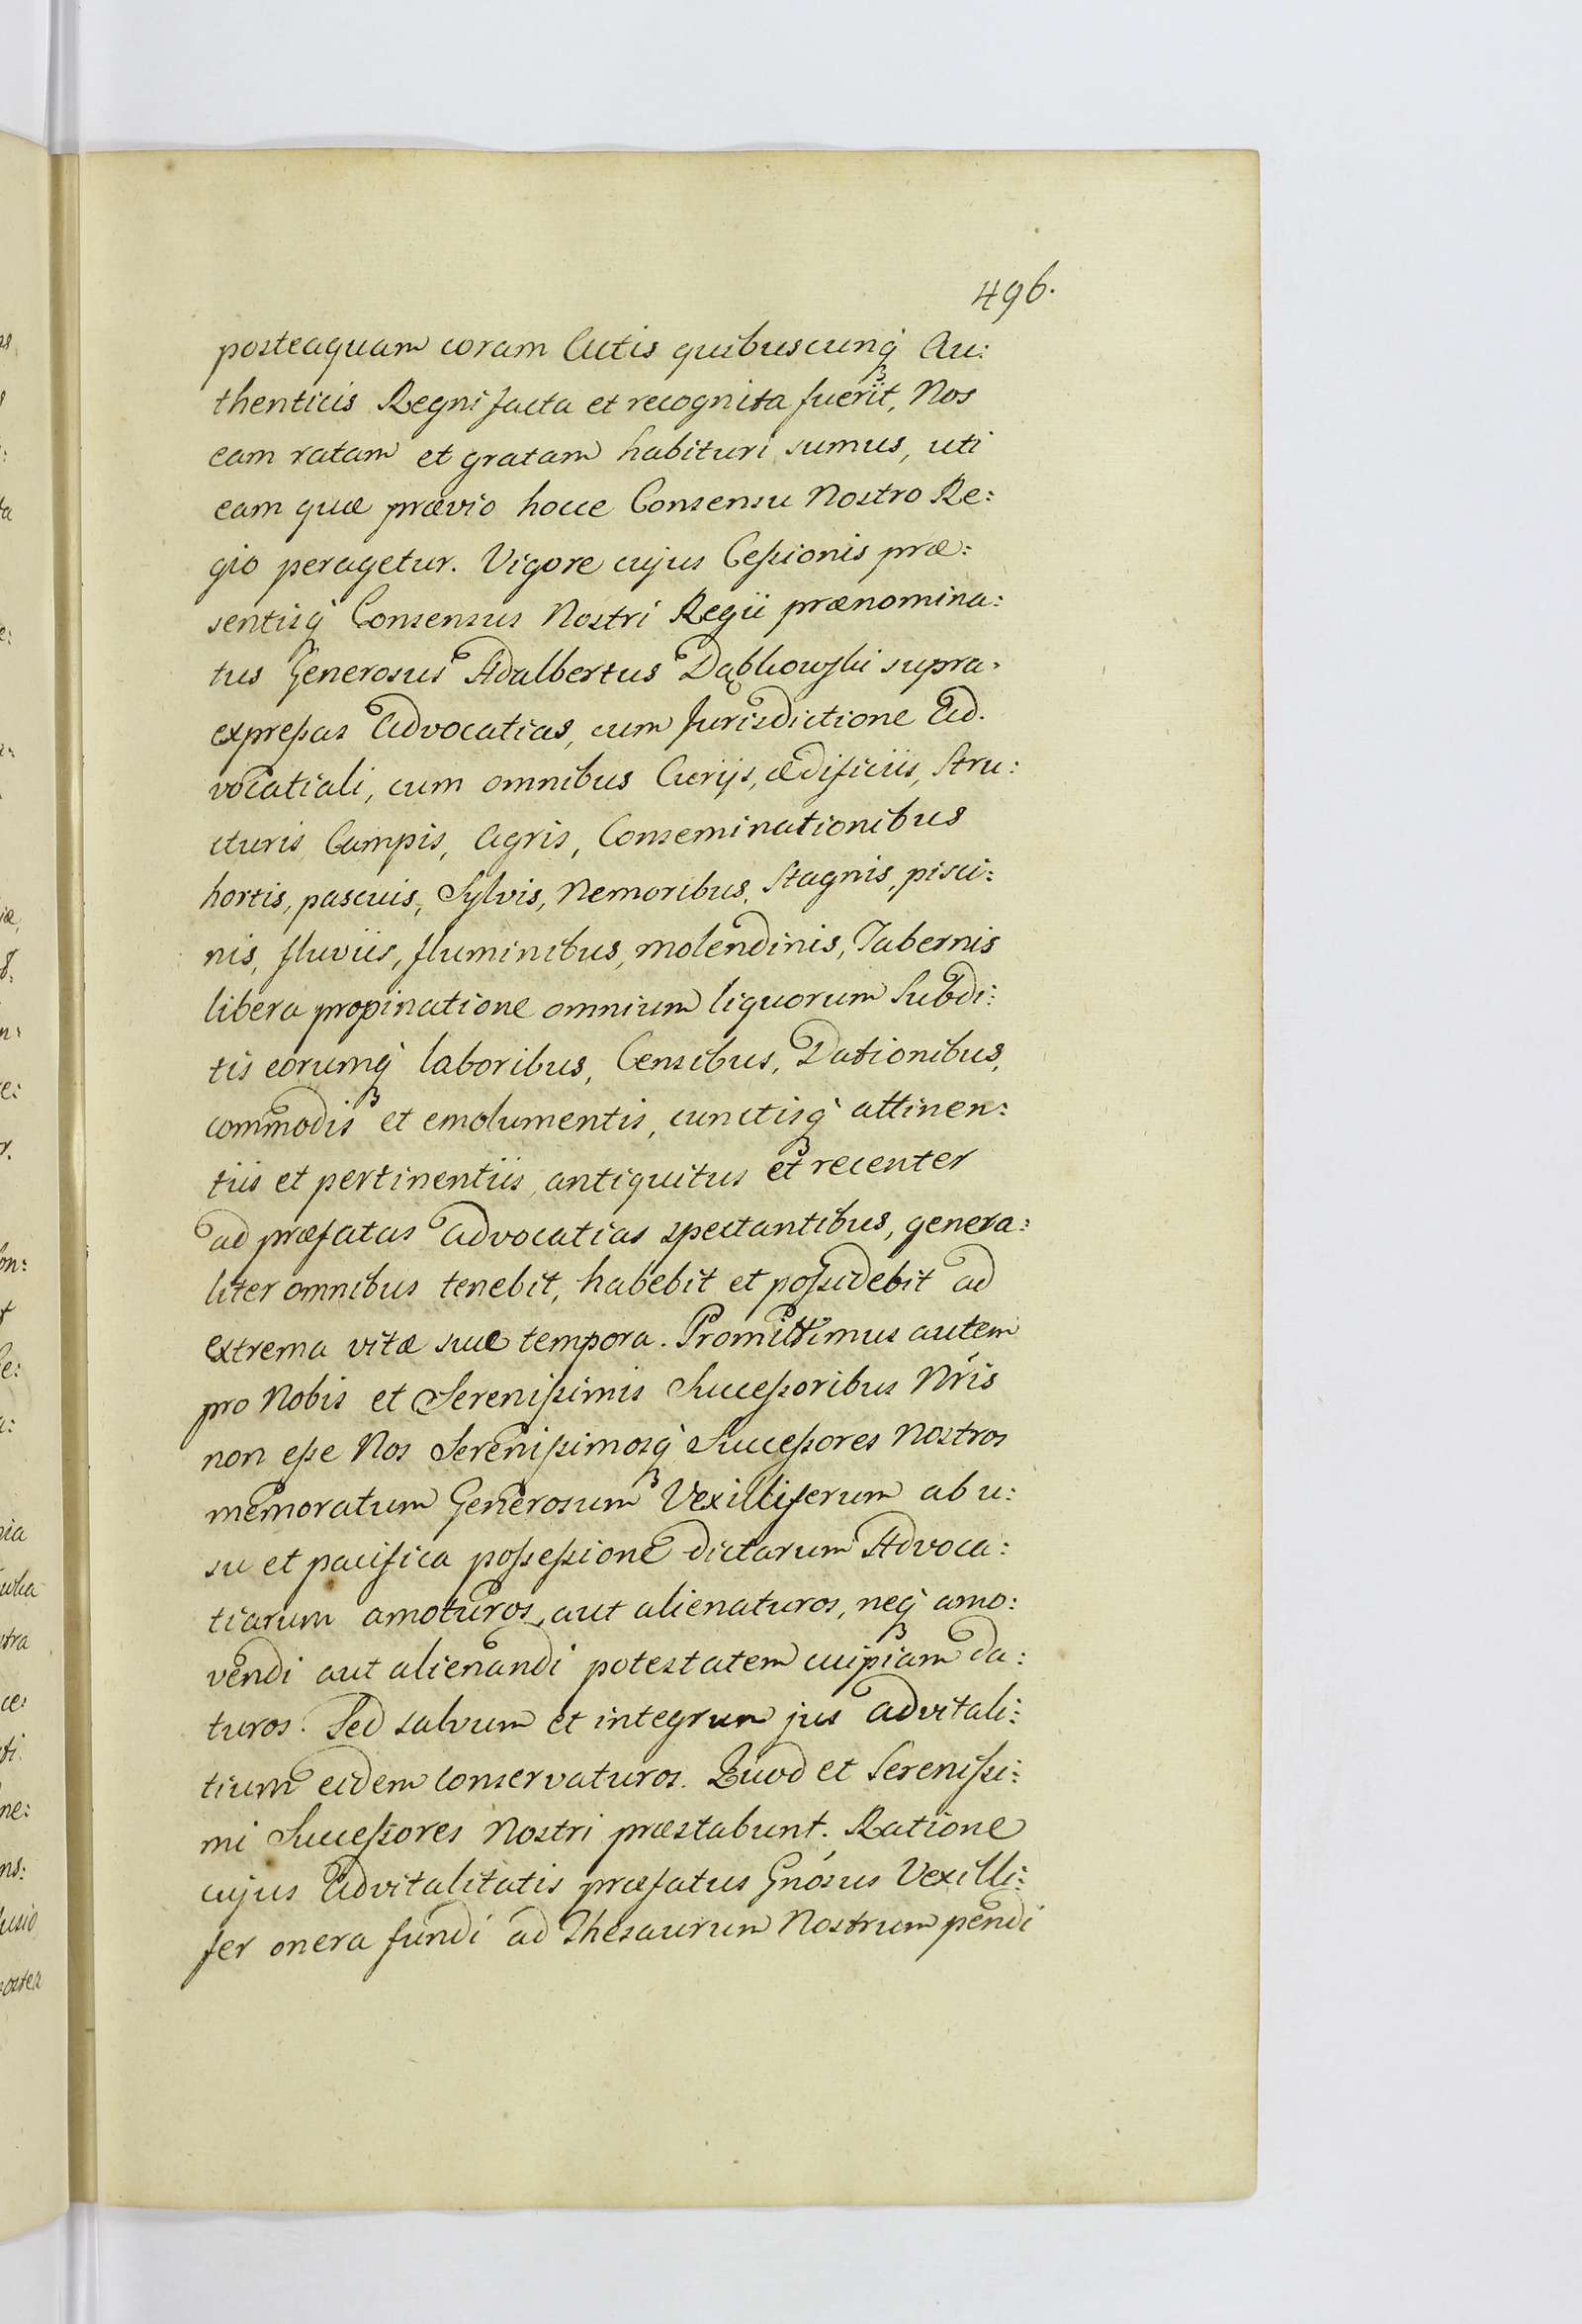 496.
posteaquam coram Actis quibuscunq́ꝫ Au:
thenticis Regni facta et recognita fuerit, Nos
eam ratam et gratam habituri sumus, uti
eam quæ prævio hocce Consensu Nostro Re:
gio peragetur. Vigore cujus Ceſsionis præ:
sentisq́ Consensus Nostri Regii prænomina:
tus Generosus Adalbertus Dąbkowſki supra-
expreſsas Advocatias, cum Jurisdictione Ad-
vocatiali, cum omnibus Curijs, ædificiis, Stru:
cturis Campis, Agris, Conseminationibus
hortis, pascuis, Sylvis, Nemoribus, Stagnis, pisci:
nis, fluviis, fluminibus, molendinis, Tabernis
libera propinatione omnium liquorum Subdi:
tis eorumq́ꝫ laboribus, Censibus, Dationibus,
commodis et emolumentis, cunctisq́ꝫ attinen:
tiis et pertinentiis, antiquitus et recenter
ad præfatas advocatias spectantibus, genera:
liter omnibus tenebit, habebit et poſsidebit ad
extrema vitæ suæ tempora. Promittimus autem
pro Nobis et Sereniſsimis Succeſsoribus Nr̃is
non eſse Nos Sereniſsimosq́ꝫ Succeſsores Nostros
memoratum Generosum Vexilliferum ab u:
su et pacifica poſseſsione dictarum Advoca:
tiarum amoturos, aut alienaturos, neq́ꝫ amo:
vendi aut alienandi potestatem cuipiam da:
turos. Sed salvum et integrum jus advitali:
tium eidem conservaturos. Quod et Sereniſsi:
mi Succeſsores Nostri præstabunt. Ratione
cujus Advitalitatis præfatus Gnósus Vexilli:
fer onera fundi ad Thesaurum Nostrum pendi